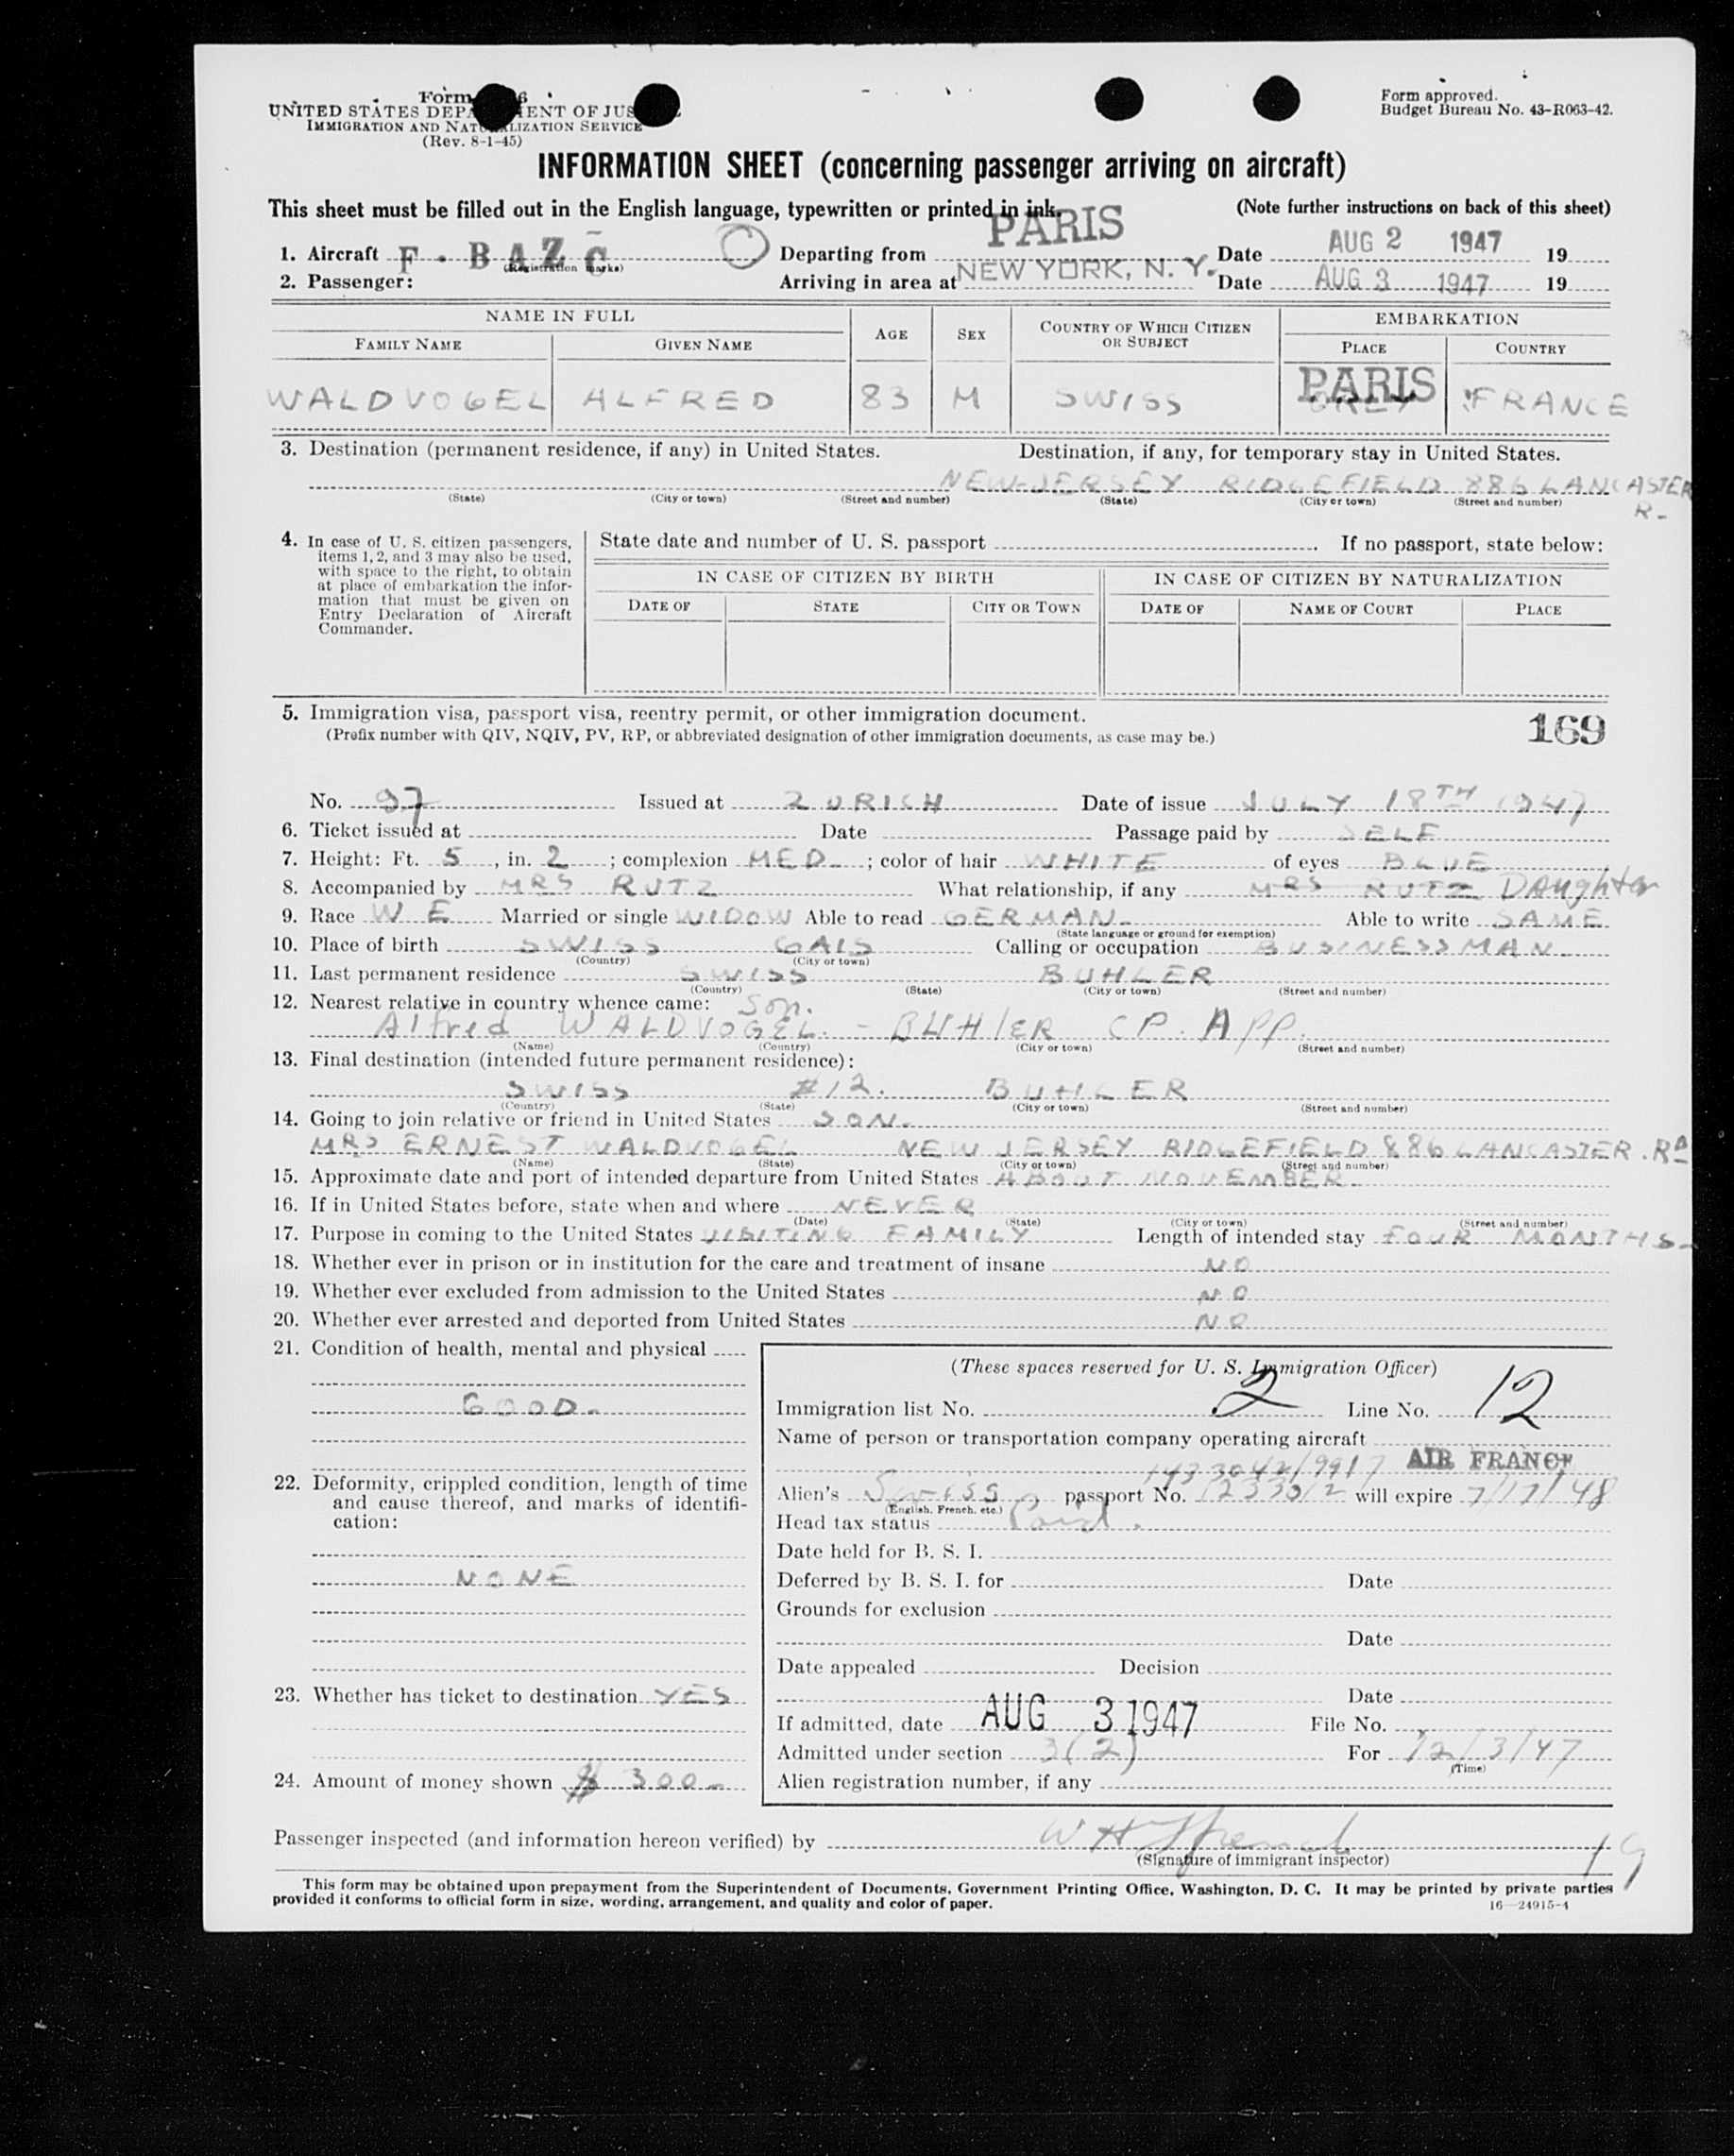 Form
UNITED STATES DEPARTMENT OF JUSTICE
IMMIGRATION AND NATURALIZATION SERVICE
(Rev. 8-1-45)
Form approved.
Budget Bureau No. 43-R063-42.
INFORMATION SHEET (concerning passenger arriving on aircraft)
This sheet must be filled out in the English language, typewritten or printed in ink. (Note further instructions on back of this sheet)
1. Aircraft F - BAZC (Registration marks) Departing from PARIS Date AUG 2 1947 19
2. Passenger: Arriving in area at NEW YORK, N. Y. Date AUG 3 1947 19
NAME IN FULL AGE SEX COUNTRY OF WHICH CITIZEN OR SUBJECT EMBARKATION
FAMILY NAME GIVEN NAME PLACE COUNTRY
WALDVOGEL ALFRED 83 M SWISS PARIS FRANCE
3. Destination (permanent residence, if any) in United States. Destination, if any, for temporary stay in United States.
NEW-JERSEY RIDGEFIELD 886 LANCASTER R-
(State) (City or town) (Street and number) (State) (City or town) (Street and number)
4. In case of U. S. citizen passengers, items 1, 2, and 3 may also be used, with space to the right, to obtain at place of embarkation the information that must be given on Entry Declaration of Aircraft Commander.
State date and number of U. S. passport If no passport, state below:
IN CASE OF CITIZEN BY BIRTH IN CASE OF CITIZEN BY NATURALIZATION
DATE OF STATE CITY OR TOWN DATE OF NAME OF COURT PLACE
5. Immigration visa, passport visa, reentry permit, or other immigration document.
(Prefix number with QIV, NQIV, PV, RP, or abbreviated designation of other immigration documents, as case may be.)
169
No. 97 Issued at ZURICH Date of issue JULY 18TH 1947
6. Ticket issued at Date Passage paid by SELF
7. Height: Ft. 5, in. 2; complexion MED; color of hair WHITE of eyes BLUE
8. Accompanied by MRS RUTZ What relationship, if any MRS RUTZ Daughter
9. Race W E Married or single WIDOW Able to read GERMAN Able to write SAME
(State language or ground for exemption)
10. Place of birth SWISS GAIS Calling or occupation BUSINESSMAN
(Country) (City or town)
11. Last permanent residence SWISS BUHLER
(Country) (State) (City or town) (Street and number)
12. Nearest relative in country whence came: Son.
Alfred WALDVOGEL - BUHLER CP. App.
(Name) (Country) (City or town) (Street and number)
13. Final destination (intended future permanent residence):
SWISS #12. BUHLER
(Country) (State) (City or town) (Street and number)
14. Going to join relative or friend in United States SON.
MRS ERNEST WALDVOGEL NEW JERSEY RIDGEFIELD 886 LANCASTER. Rd
(Name) (State) (City or town) (Street and number)
15. Approximate date and port of intended departure from United States ABOUT NOVEMBER.
16. If in United States before, state when and where NEVER
(Date) (State) (City or town) (Street and number)
17. Purpose in coming to the United States VISITING FAMILY Length of intended stay FOUR MONTHS
18. Whether ever in prison or in institution for the care and treatment of insane NO
19. Whether ever excluded from admission to the United States NO
20. Whether ever arrested and deported from United States NO
21. Condition of health, mental and physical
GOOD
22. Deformity, crippled condition, length of time and cause thereof, and marks of identification:
NONE
23. Whether has ticket to destination YES
24. Amount of money shown $ 300
(These spaces reserved for U. S. Immigration Officer)
Immigration list No. 2 Line No. 12
Name of person or transportation company operating aircraft
AIR FRANCE
Alien's Swiss passport No. will expire 7/17/48
(English, French, etc.)
Head tax status Paid.
Date held for B. S. I.
Deferred by B. S. I. for Date
Grounds for exclusion
Date
Date appealed Decision
Date
If admitted, date AUG 3 1947 File No.
Admitted under section 3(2) For 12/3/47
(Time)
Alien registration number, if any
Passenger inspected (and information hereon verified) by
(Signature of immigrant inspector)
19
This form may be obtained upon prepayment from the Superintendent of Documents, Government Printing Office, Washington, D. C. It may be printed by private parties
provided it conforms to official form in size, wording, arrangement, and quality and color of paper.
16—24915-4